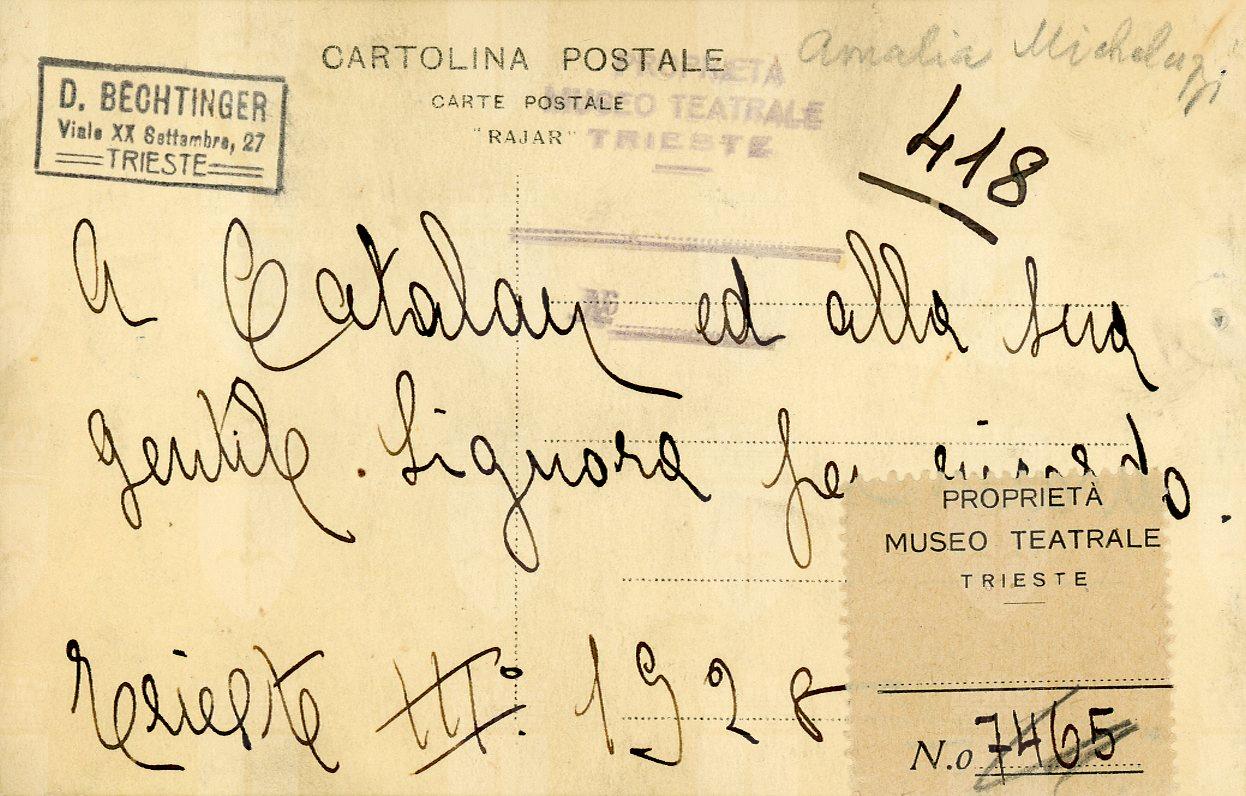 Amalia Micheluzzi
CARTOLINA POSTALE
CARTE POSTALE
"RAJAR"
D. BECHTINGER
Viale XX Settembre, 27
TRIESTE
PROPRIETÀ
MUSEO TEATRALE
TRIESTE
No
418
A Catalan ed alla sua
gentile Signora per ricordo.
Trieste III: 1928
PROPRIETÀ
MUSEO TEATRALE
TRIESTE
N.o 7465